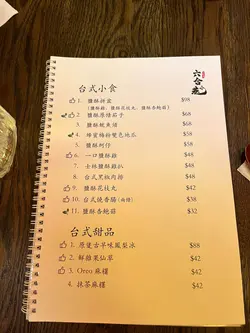 六合苑
台式小食
1. 鹽酥拼盤 $98
(鹽酥雞、鹽酥花枝丸、鹽酥杏鮑菇)
2. 鹽酥原條茄子 $68
3. 鹽酥魷魚鬚 $68
4. 蜂蜜梅粉雙色地瓜 $58
5. 鹽酥蚵仔 $58
6. 一口鹽酥雞 $48
7. 士林鹽酥雞扒 $48
8. 台式黑椒肉排 $48
9. 鹽酥花枝丸 $42
10. 台式燒香腸 $38
11. 鹽酥杏鮑菇 $32
台式甜品
1. 原隻古早味鳳梨冰 $88
2. 鮮雜果仙草 $42
3. Oreo 麻糬 $42
4. 抹茶麻糬 $42